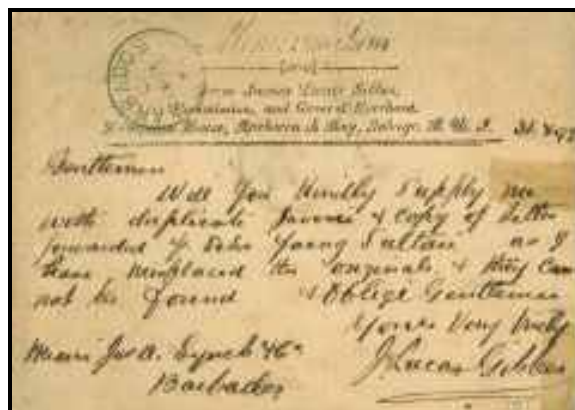 Memorandum
from James Lucas Gibbes,
Commission, and General Merchant.
Rockborn & Bay, Tobago. B. W. I.
Gentlemen
Will you kindly supply me
with duplicate Invoice & copy of letter
forwarded p Schr Young Sultan as I
have misplaced the originals & they can
not be found & Oblige Gentlemen
Yours Very truly
J. Lucas Gibbes
Messrs Jas A. Lynch & Co
Barbados